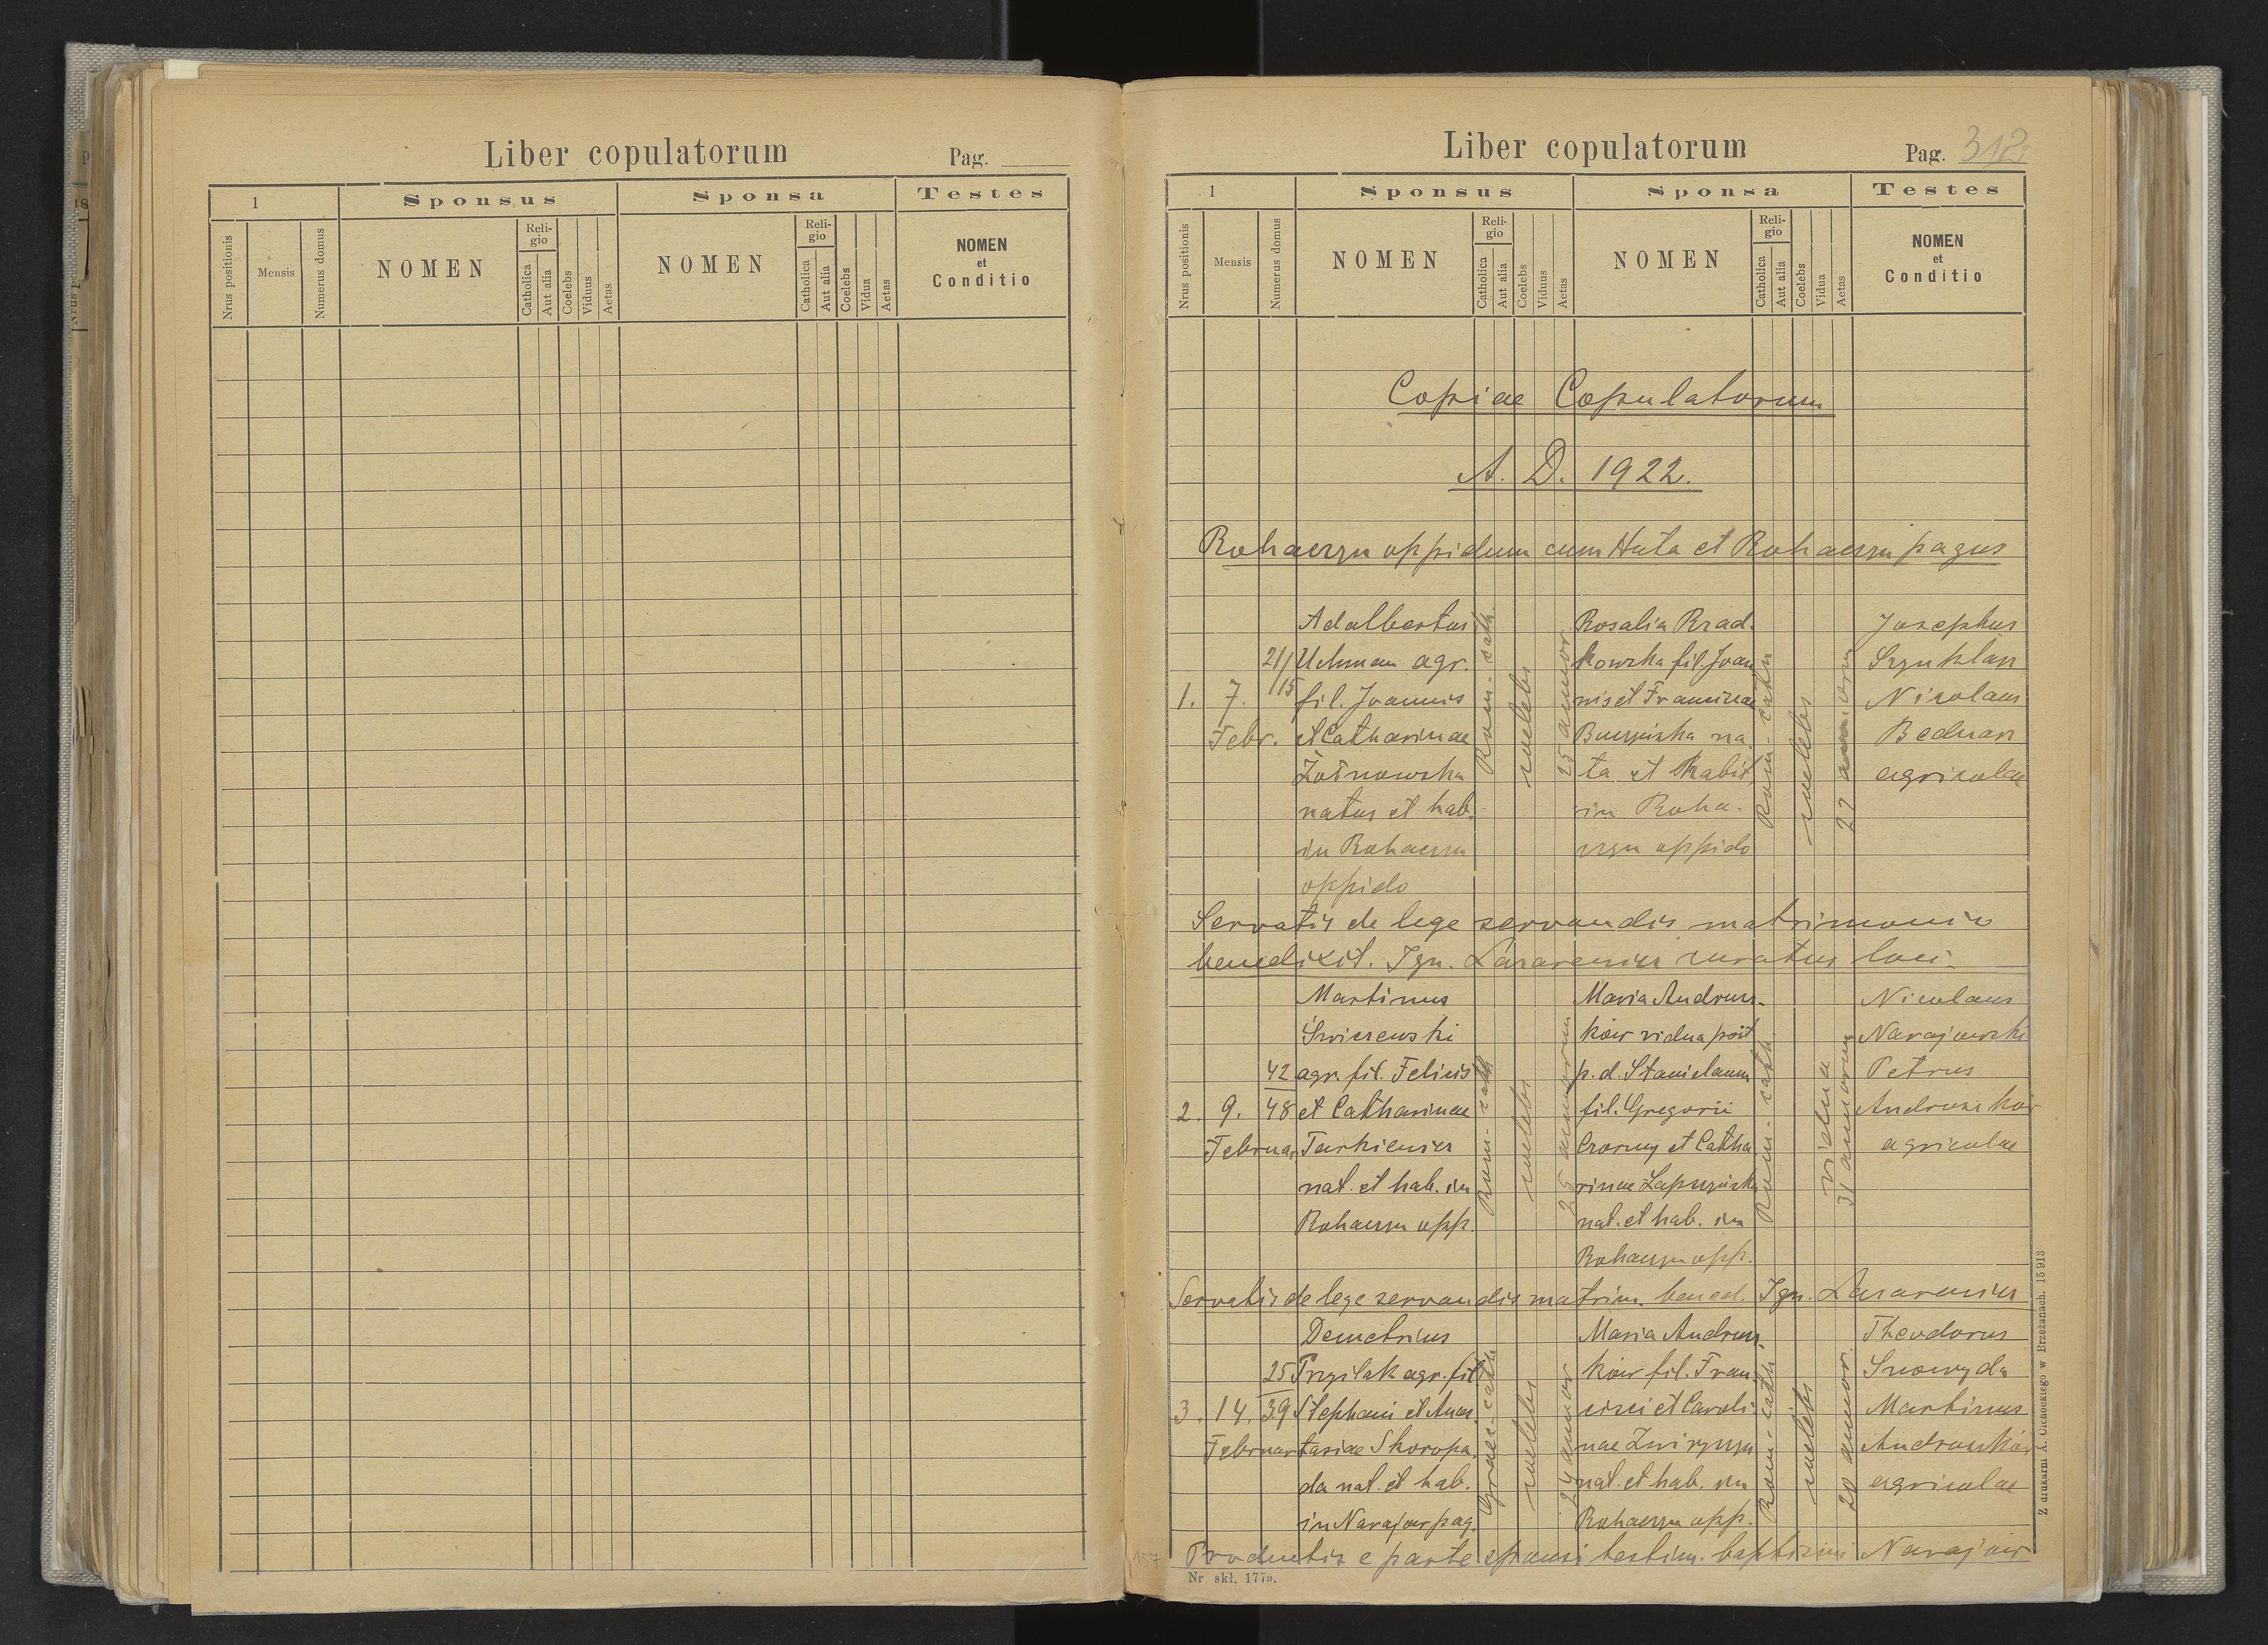 Liber copulatorum
Pag.
1
Sponsus
Sponsa
Testes
Nrus positionis
Mensis
Numerus domus
NOMEN
Religio
Catholica
Aut alia
Coelebs
Viduus
Aetas
NOMEN
Religio
Catholica
Aut alia
Coelebs
Vidua
Aetas
NOMEN
et
Conditio
Liber copulatorum
Pag. 312
1
Sponsus
Sponsa
Testes
Nrus positionis
Mensis
Numerus domus
NOMEN
Religio
Catholica
Aut alia
Coelebs
Viduus
Aetas
NOMEN
Religio
Catholica
Aut alia
Coelebs
Vidua
Aetas
NOMEN
et
Conditio
Copiae Copulatorum
A. D. 1922.
Rohaczyn oppidum cum Huta et Rohaczyn pagus
1. 7. Febr.
211/15
Adalbertus
Uchman agr.
fil. Joannis
et Catharinae
natus et hab.
in Rohaczyn
oppido
Rom-cath.
coelebs
25 annor.
Rosalia Rzad-
kowska fil. Joan
nis et Franciscae
Buczyńska na
ta et habit
in Roha-
czyn oppido
Rom-cath
coelebs
22 annorum
Josephus
Szyuklar
Nicolaus
Bednarz
agricolae
Servatis de lege servandis matrimonio
benedixit. Ign. Łazarewicz curatus loci.
2. 9. Februar.
42
48
Martinus
Świszewski
agr. fil. Felicis
et Catharinae
Tarkiewicz
nat. et hab. in
Rohaczyn opp.
Rom-cath
coelebs
25 annorum
Maria Andrus-
ków vidua post
p. d. Stanislaum
fil. Gregorii
Czorny et Catha
rinae Łapszyńska
nat. et hab. in
Rohaczyn opp.
Rom-cath.
vidua
31 annorum
Nicolaus
Narajowski
Petrus
Andrusików
agricolae
Servatis de lege servandis matrim. bened. Ign. Łazarewicz
3. 14. Februar
25
39
Demetrius
Przyślak agr. fil.
Stephani et Anas
tasiae Skoropa
da nat. et hab.
in Narajów pag.
Graec-cath
coelebs
24 annor
Maria Andrus
ków fil. Fran
cisci et Caroli-
nae Zwirzyszyn
nat. et hab. in
Rohaczyn opp.
Rom-cath.
coelebs
20 annor.
Theodorus
Snowyda
Martinus
Andrusików
agricolae
Productis e parte sponsi testim. baptismi Narajów
157
Nr skł. 177a.
Z drukarni A. Cichockiego w Brzeżanach. 15913